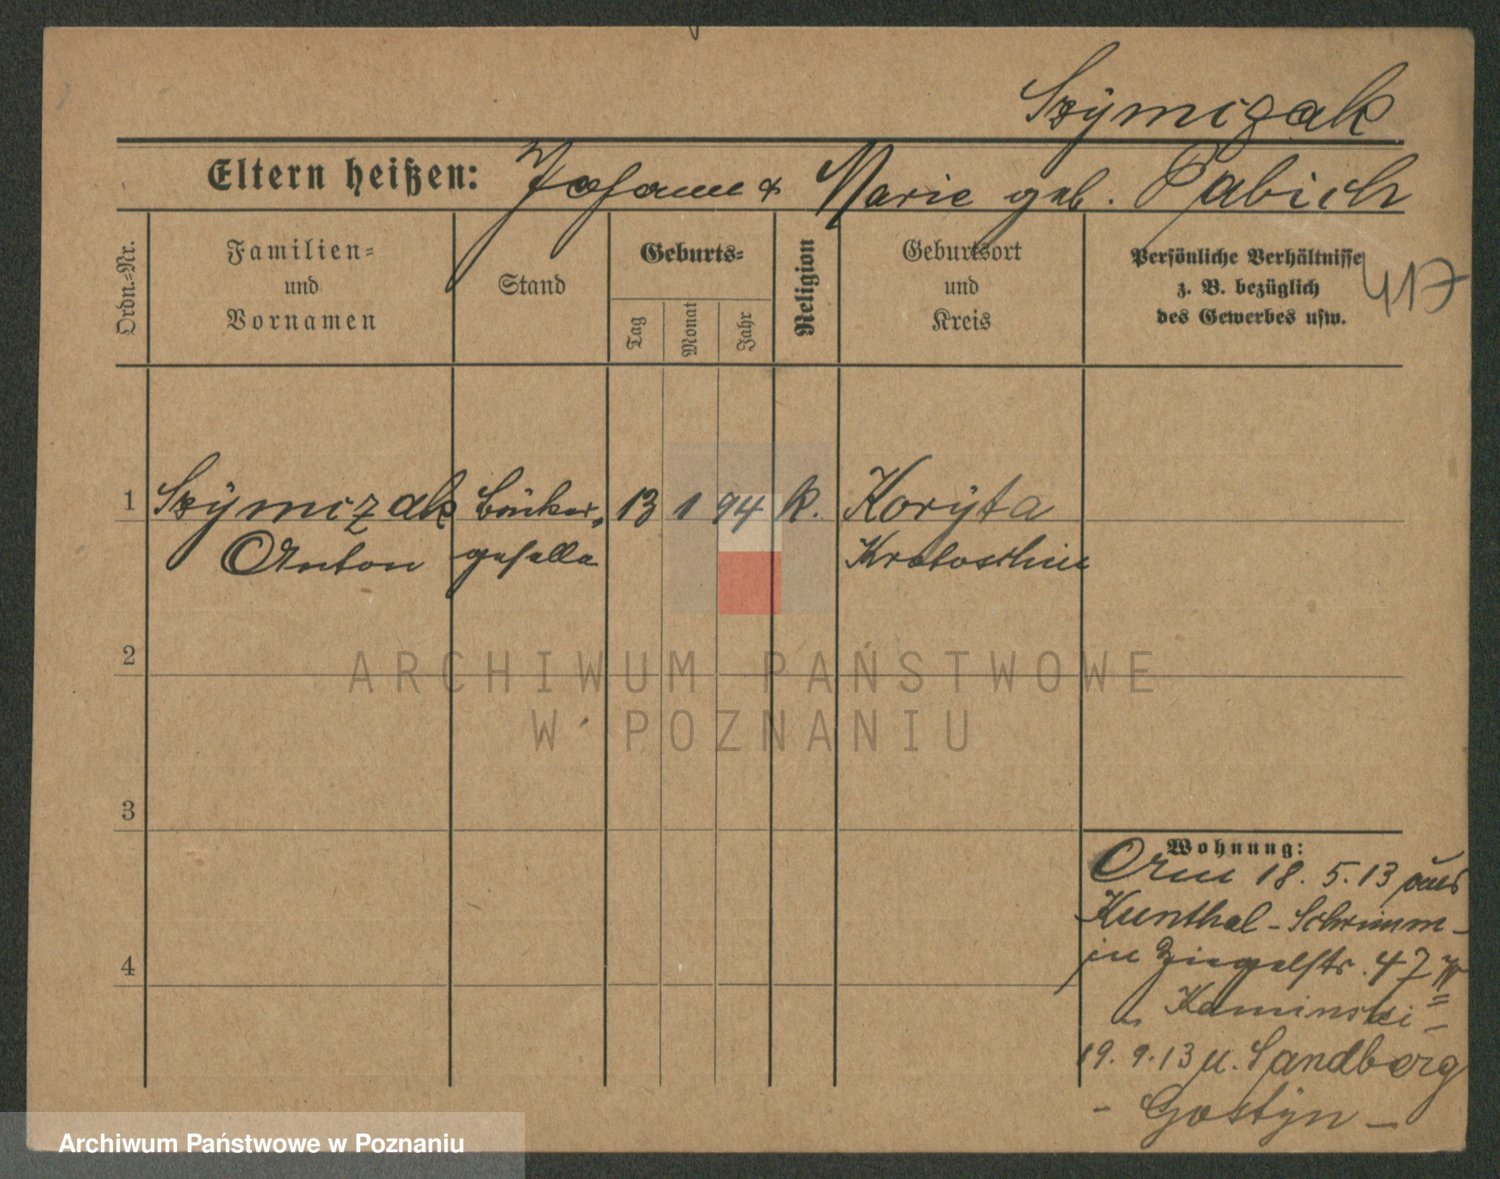 Szÿmczak
Eltern heißen: Johann & Marie geb. Pabich
Ordn.-Nr.
Familien-
und
Vornamen
Stand
Geburts-
Tag
Monat
Jahr
Religion
Geburtsort
und
Kreis
Persönliche Verhältnisse
z. B. bezüglich
des Gewerbes usw.
417
1 Szÿmczak Bäcker- 13 1 94 k. Korÿta
Anton geselle Krotoschin
2
ARCHIWUM PAŃSTWOWE
W POZNANIU
3
Wohnung:
Am 18. 5. 13 aus
Kunthal - Schrimm -
in Ziegelstr. 47
b. Kaminski -
19. 9. 13 n. Sandberg
- Gostÿn -
4
Archiwum Państwowe w Poznaniu